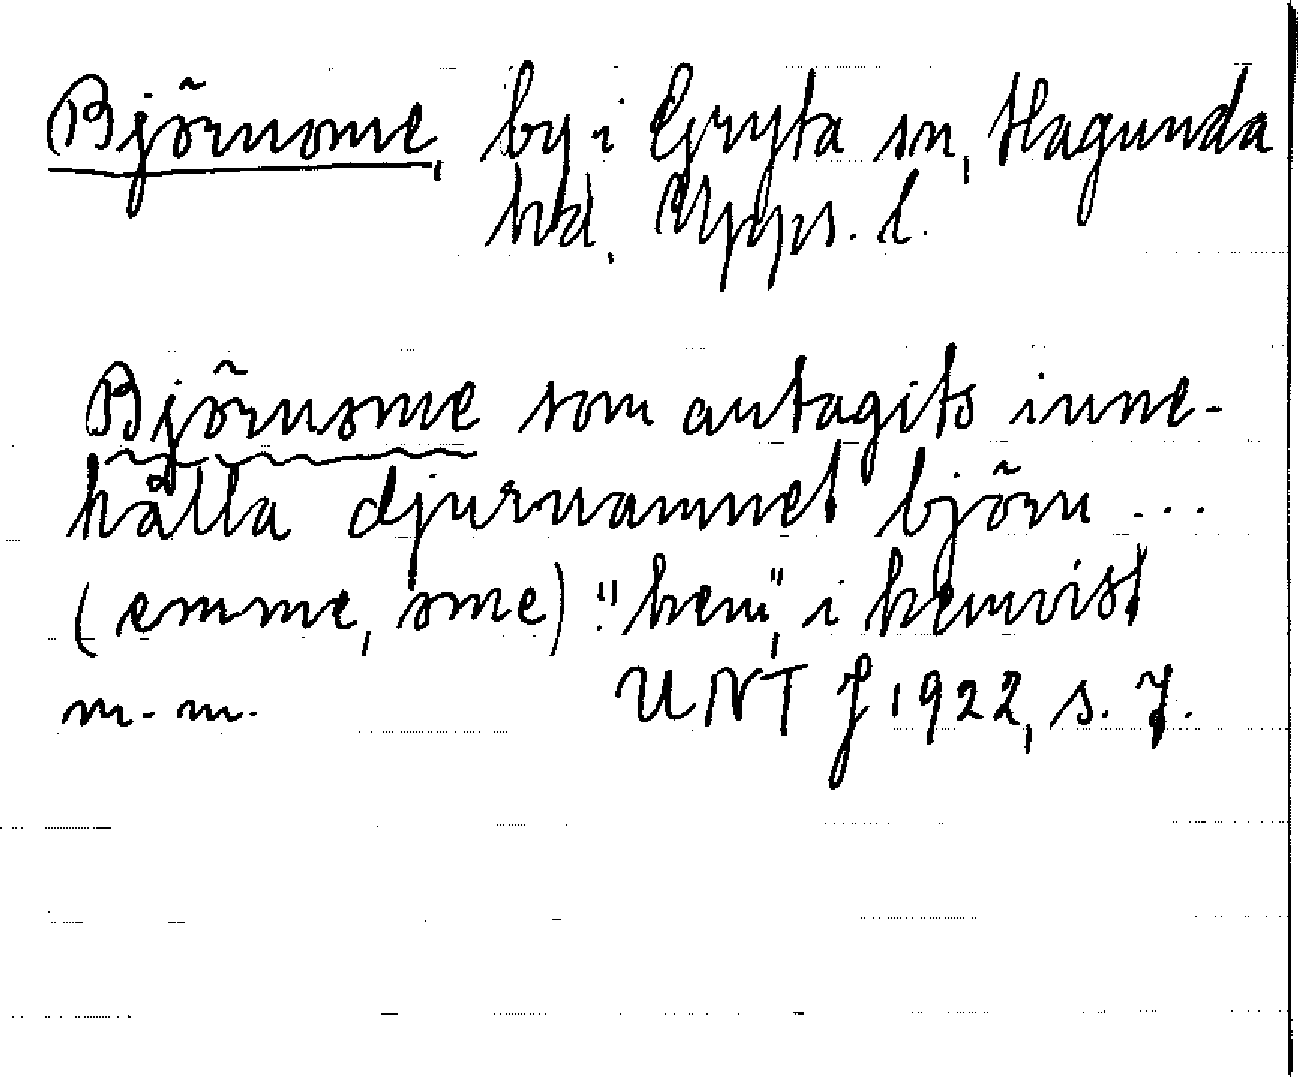 Björnome, by i Gryta sn, Hagunda
hd, Upps. l.
Björnome som antagits inne-
hålla djurnamnet björn ...
(emme, ome) "hem", i hemvist
m. m. UNT J 1922, s. 7.